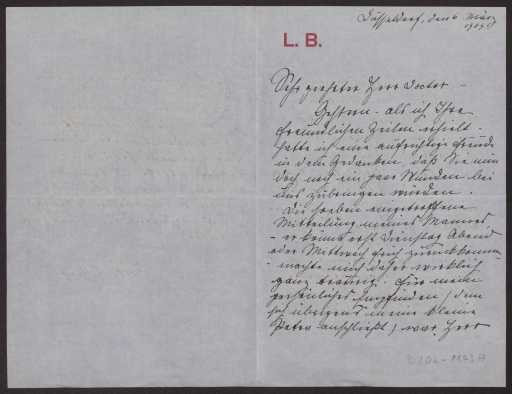 Düsseldorf, den 6 März
L. B.
Sehr geehrter Herr Doctor –
Gestern – als ich Ihre
freundlichen Zeilen erhielt –
hatte ich eine aufrichtige Freude
in dem Gedanken, daß Sie nun
doch noch ein paar Stunden bei
uns zubringen würden.
Die soeben eingetroffene
Mitteilung meines Mannes
– er könne erst Dienstag Abend
oder Mittwoch früh zurückkommen
– machte mich daher wirklich
ganz traurig. Für mein
persönliches Empfinden (dem
sich übrigens meine kleine
anschließt) war, Herr